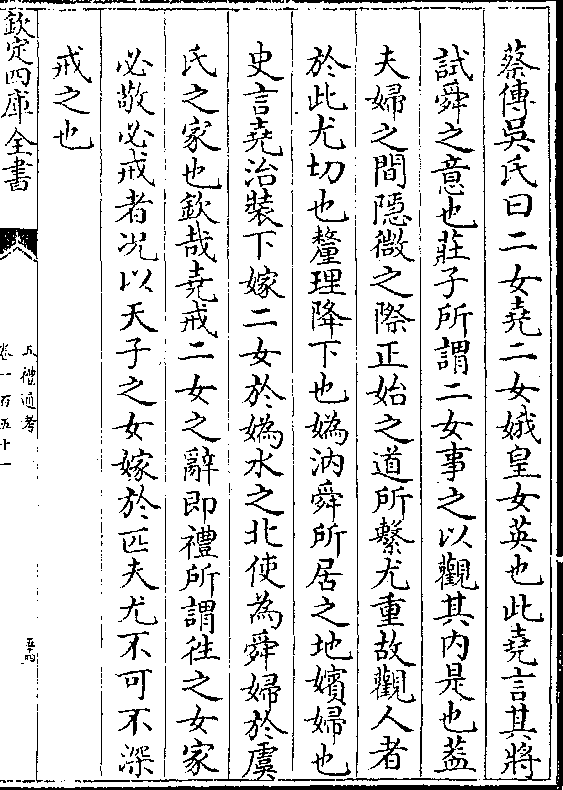 蔡傳吳氏曰二女堯二女娥皇女英也此堯言其將
試舜之意也莊子所謂二女事之以觀其內是也葢
夫婦之間隱微之際正始之道所繫尤重故觀人者
於此尤切也釐理降下也媯汭舜所居之地嬪婦也
史言堯治裝下嫁二女於媯水之北使為舜婦於虞
氏之家也欽哉堯戒二女之辭即禮所謂徃之女家
必敬必戒者况以天子之女嫁於匹夫尤不可不深
戒之也
欽定四庫全書
五禮通考
卷一百五十一